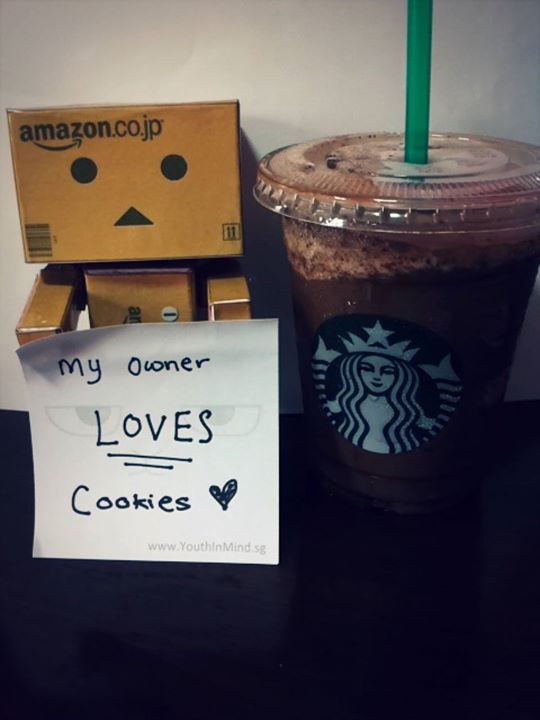 amazon.co.jp
My owner
LOVES
Cookies
www.YouthInMind.sg